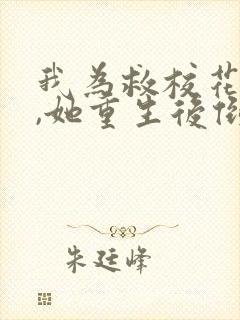 我為救校花
,她重生後倒
朱廷峰